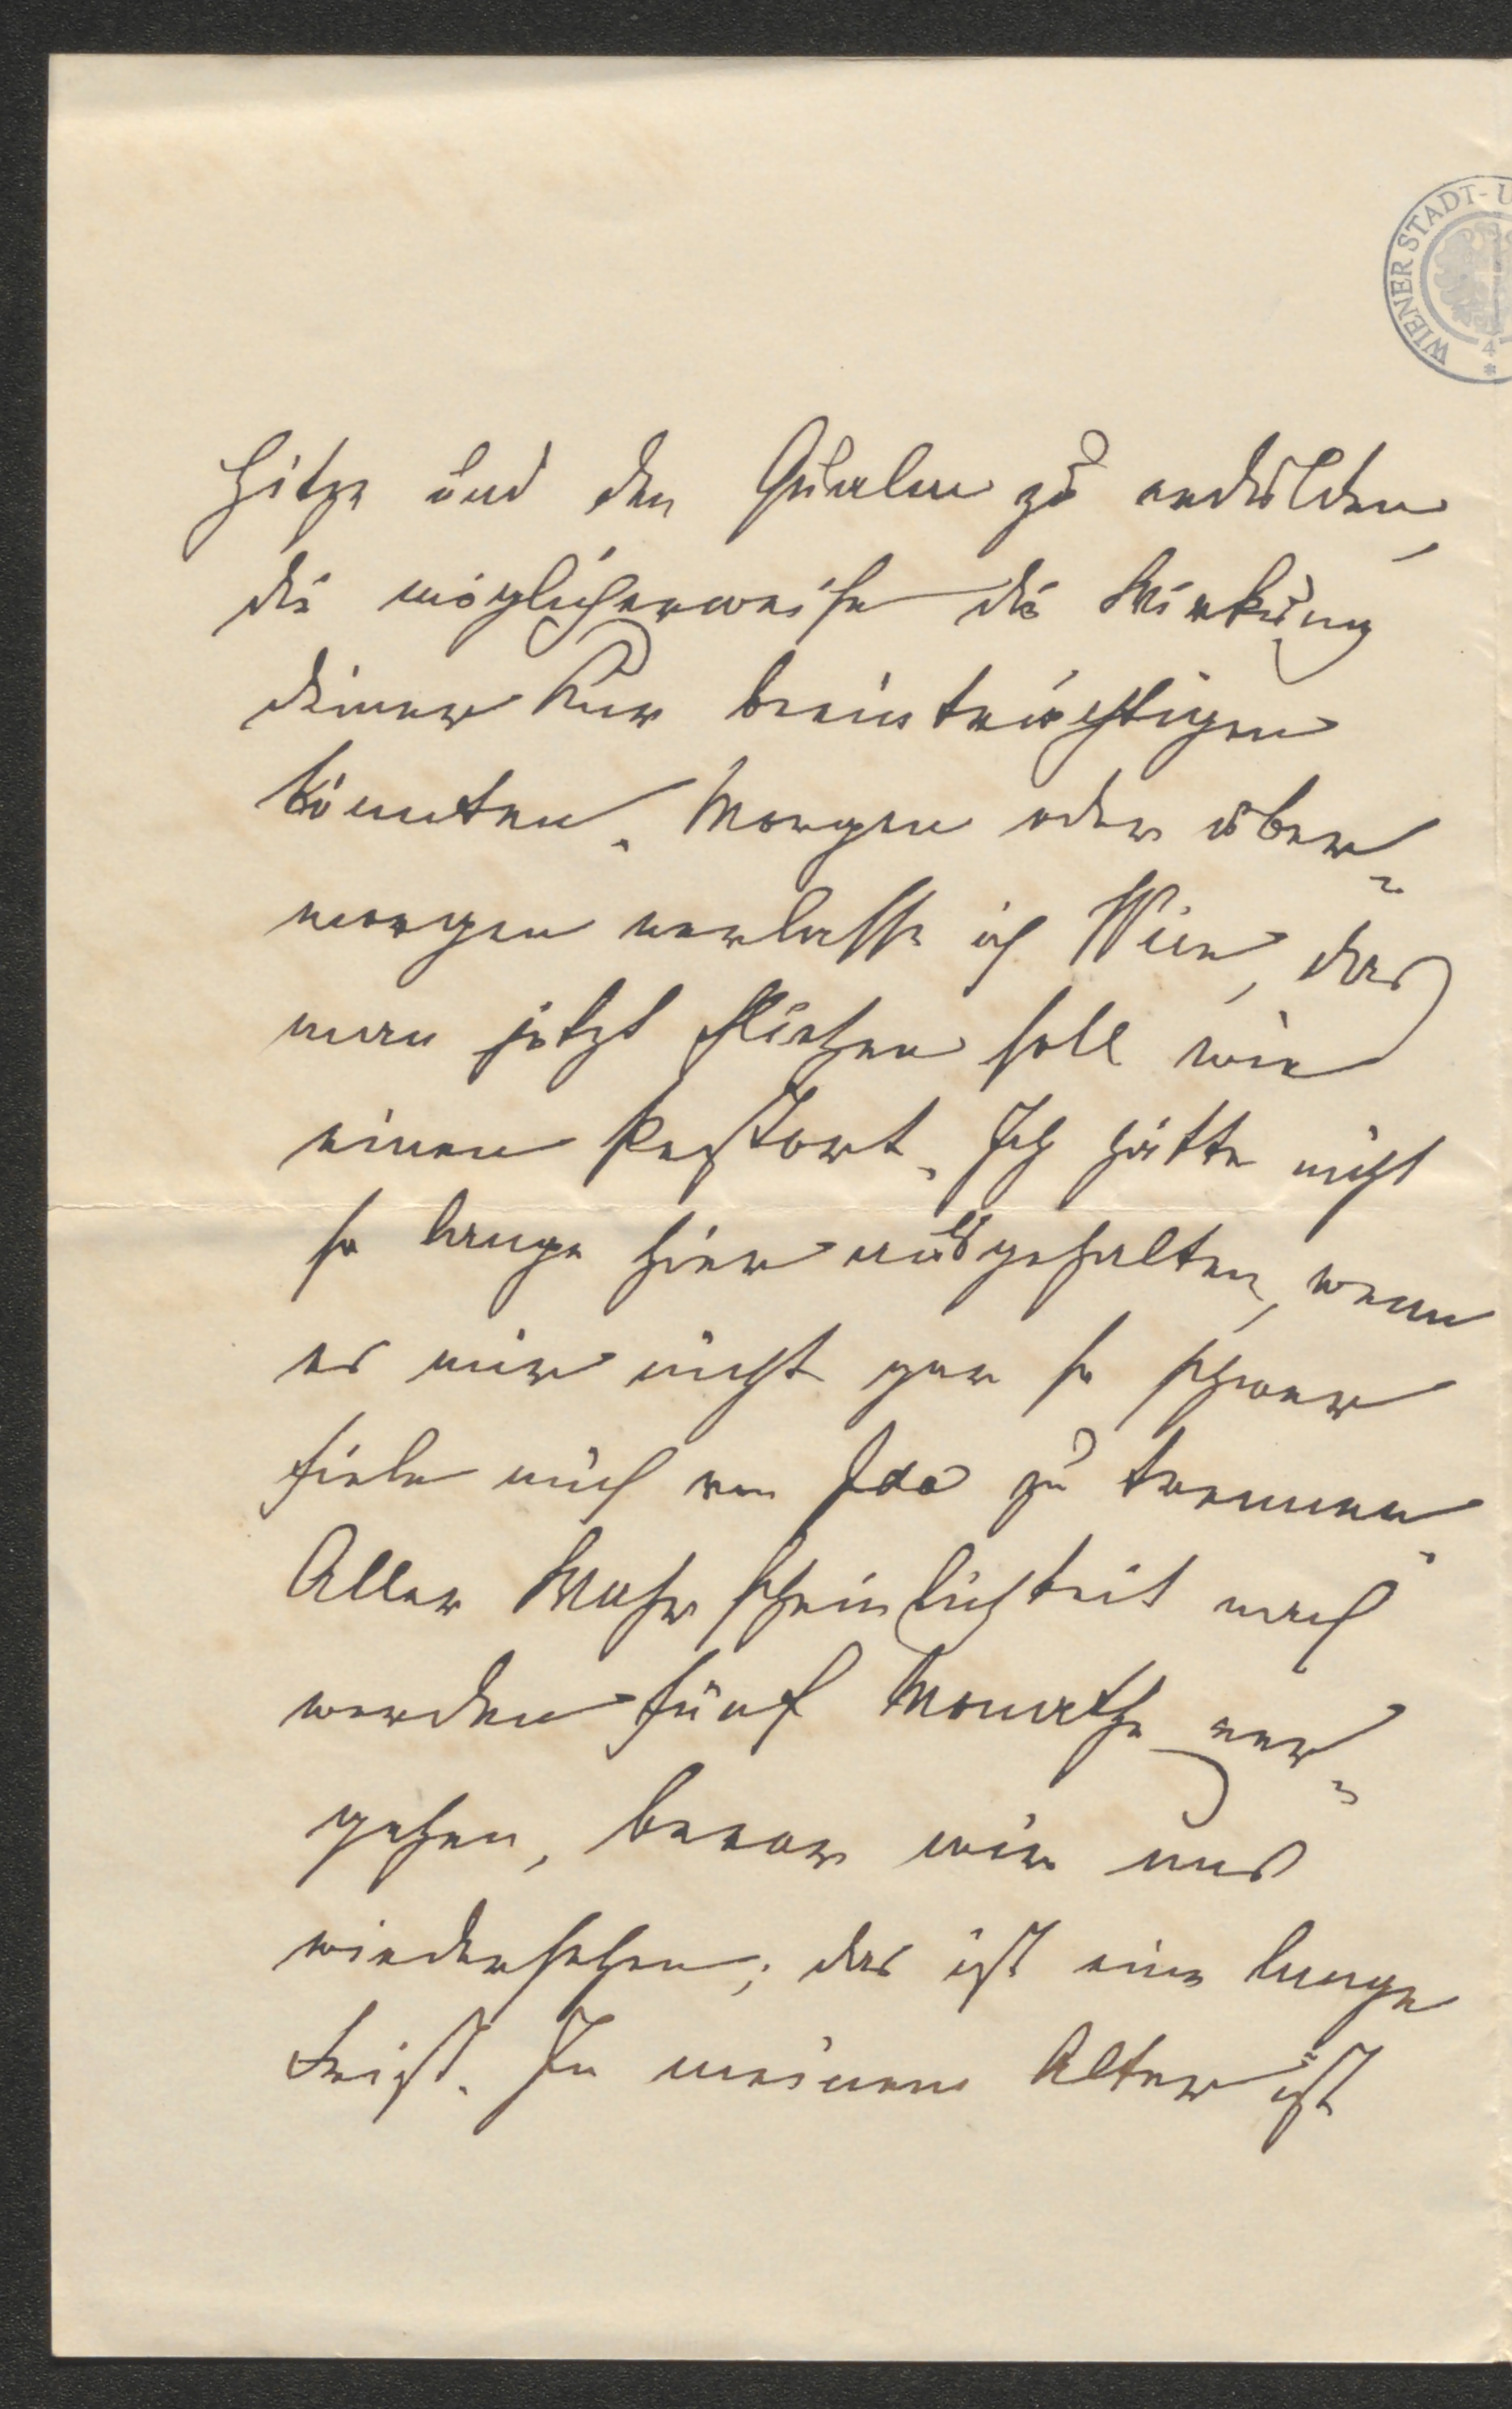 WIENER STADT-U
4
Hitze und den Qualen zu erdulden,
die möglicherweise die Wirkung
deiner Kur beeinträchtigen
könnten. Morgen oder über-
morgen verlasse ich Wien, das
man jetzt fliehen soll wie
einen Pestort. Ich hätte nicht
so lange hier ausgehalten, wenn
es mir nicht gar so schwer
fiele mich von Ida zu trennen.
Aller Wahrscheinlichkeit nach
werden fünf Monathe ver-
gehen, bevor wir uns
wiedersehen; das ist eine lange
Frist. In meinem Alter ist